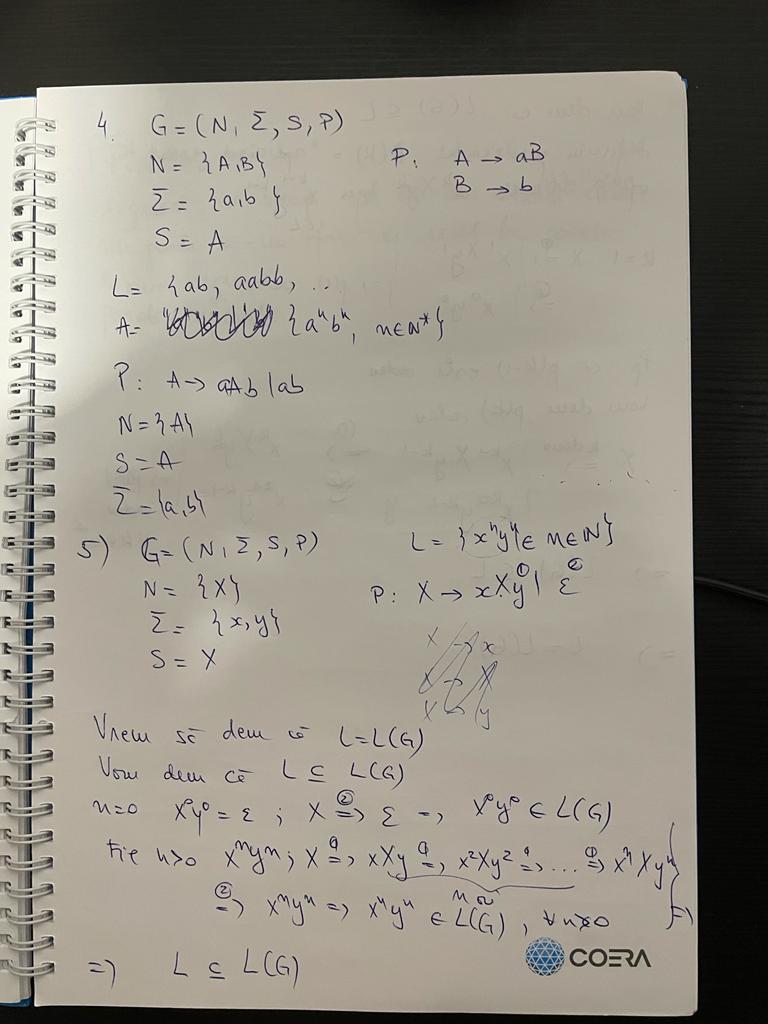 4. G = (N, Σ, S, P)
N = {A, B} P: A → aB
Σ = {a, b} B → b
S = A
L = {ab, aabb, ...
A = {aⁿbⁿ, n∈N*}
P: A → aAb | ab
N = {A}
S = A
Σ = {a, b}
5) G = (N, Σ, S, P) L = {xⁿyⁿ∈ n∈N}
N = {X} P: X → xXy ① | ε ②
Σ = {x, y}
S = X
X → x
X → X
X → y
Vrem să dem că L = L(G)
Vom dem că L ⊆ L(G)
n=0 x⁰y⁰ = ε ; X ②⇒ ε => x⁰y⁰ ∈ L(G)
Fie n>0 xⁿyⁿ ; X ①⇒ xXy ①⇒ x²Xy² ①⇒ ... ①⇒ xⁿXyⁿ
n ori
②⇒ xⁿyⁿ => xⁿyⁿ ∈ L(G), ∀n>0 =>
=> L ⊆ L(G)
COERA